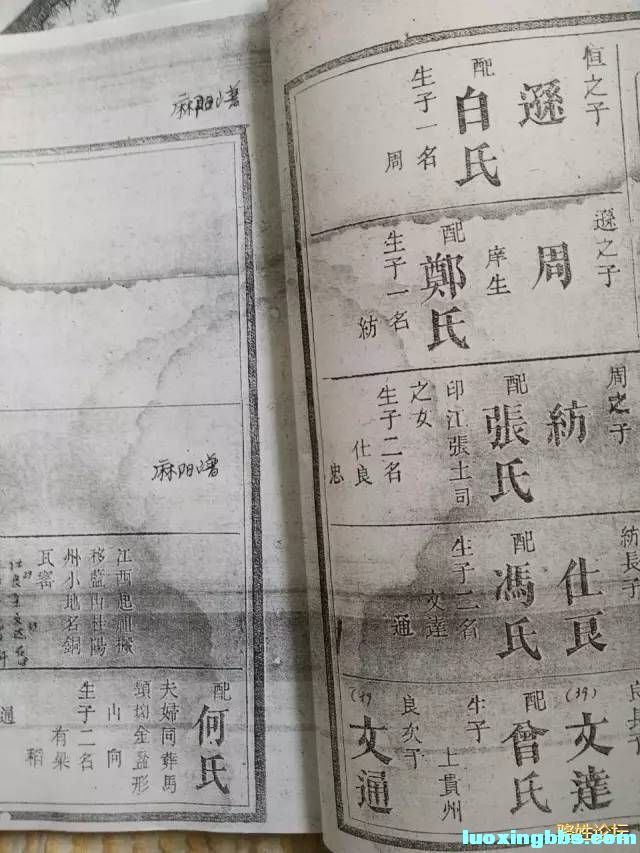 恒之子
遜
配
白氏
生子一名
周
遜之子
周
庠生
配
鄭氏
生子一名
紡
周之子
紡
配
張氏
印江張土司
之女
生子二名
仕良
忠
紡長子
仕良
配
馮氏
生子二名
文達
通
良長子
(39)
文達
配
曾氏
生子
上貴州
良次子
(39)
文通
麻阳谱
麻阳谱
江西
移藍山桂陽
州小地名銅
瓦窰
配
何氏
夫婦同葬馬
頸坳金盆形
山向
生子二名
有梁
稻
通
骆姓论坛
luoxingbbs.com